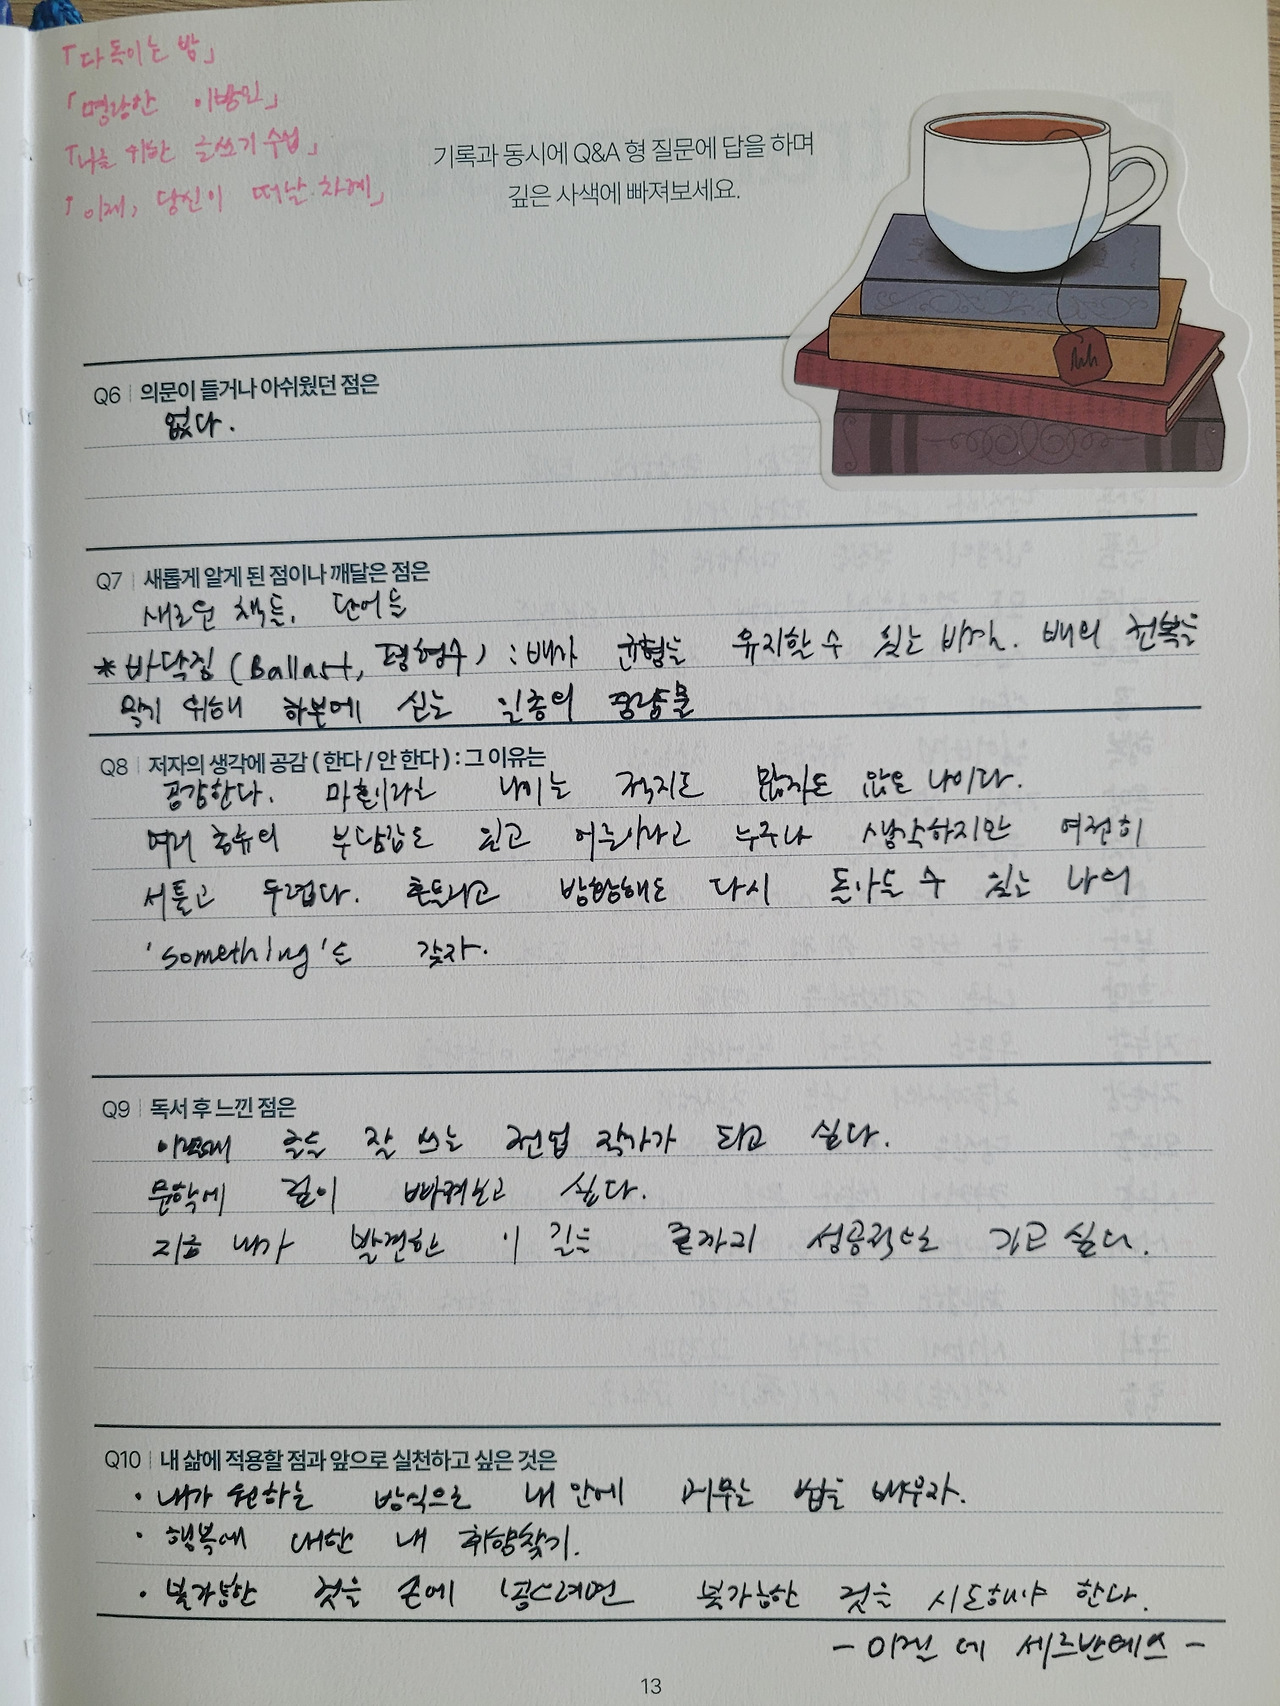 「다독이는 밤」
「명랑한 이방인」
「나를 위한 글쓰기 수업」
「이제, 당신이 떠날 차례」
기록과 동시에 Q&A 형 질문에 답을 하며
깊은 사색에 빠져보세요.
Q6 | 의문이 들거나 아쉬웠던 점은
없다.
Q7 | 새롭게 알게 된 점이나 깨달은 점은
새로운 책들, 단어들
* 바닥짐 (Ballast, 평형수) : 배가 균형을 유지할 수 있는 비결. 배의 전복을
막기 위해 하부에 싣는 일종의 중량물
Q8 | 저자의 생각에 공감 ( 한다 / 안 한다 ) : 그 이유는
공감한다. 마흔이라는 나이는 적지도 많지도 않은 나이다.
여러 종류의 부담감도 있고 어른이라고 누구나 생각하지만 여전히
서툴고 두렵다. 흔들리고 방황해도 다시 돌아올 수 있는 나의
'something'도 갖자.
Q9 | 독서 후 느낀 점은
이렇게 글을 잘 쓰는 전업 작가가 되고 싶다.
문학에 깊이 빠져보고 싶다.
지금 내가 발견한 이 길을 끝까지 성공적으로 가고 싶다.
Q10 | 내 삶에 적용할 점과 앞으로 실천하고 싶은 것은
· 내가 원하는 방식으로 내 안에 머무는 법을 배우자.
· 행복에 대한 내 취향찾기.
· 불가능한 것을 손에 넣으려면 불가능한 것을 시도해야 한다.
- 미겔 데 세르반테스 -
13